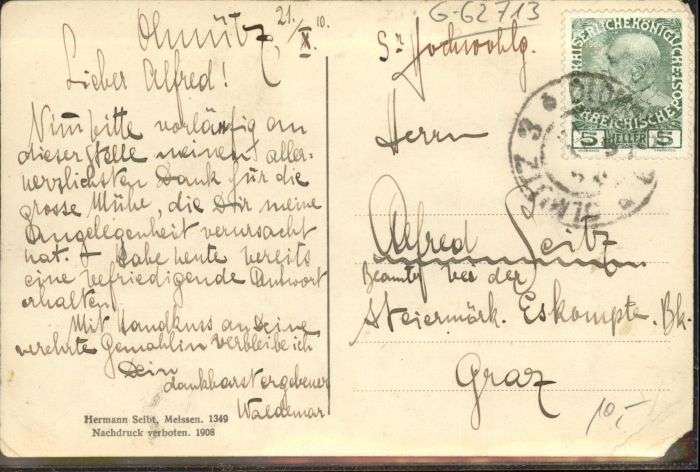 G-62713
Olmütz, 21./X. 10.
Lieber Alfred!
Nimm bitte vorläufig an
dieser Stelle meinen aller-
herzlichsten Dank für die
grosse Mühe, die Dir meine
Angelegenheit verursacht
hat. – Habe heute bereits
eine befriedigende Antwort
erhalten.
Mit Handkuss an Deine
verehrte Gemahlin verbleibe ich
Dein
dankbarst ergebener
Waldemar
Hermann Seibt, Meissen. 1349
Nachdruck verboten. 1908
Sr Hochwohlg.
Herrn
Alfred Seitz
Beamter bei der
Steiermärk. Eskompte-Bk.
Graz
10,-
KAISERLICHE KÖNIGLICHE
REICHISCHE
5 HELLER 5
OLMÜTZ 3